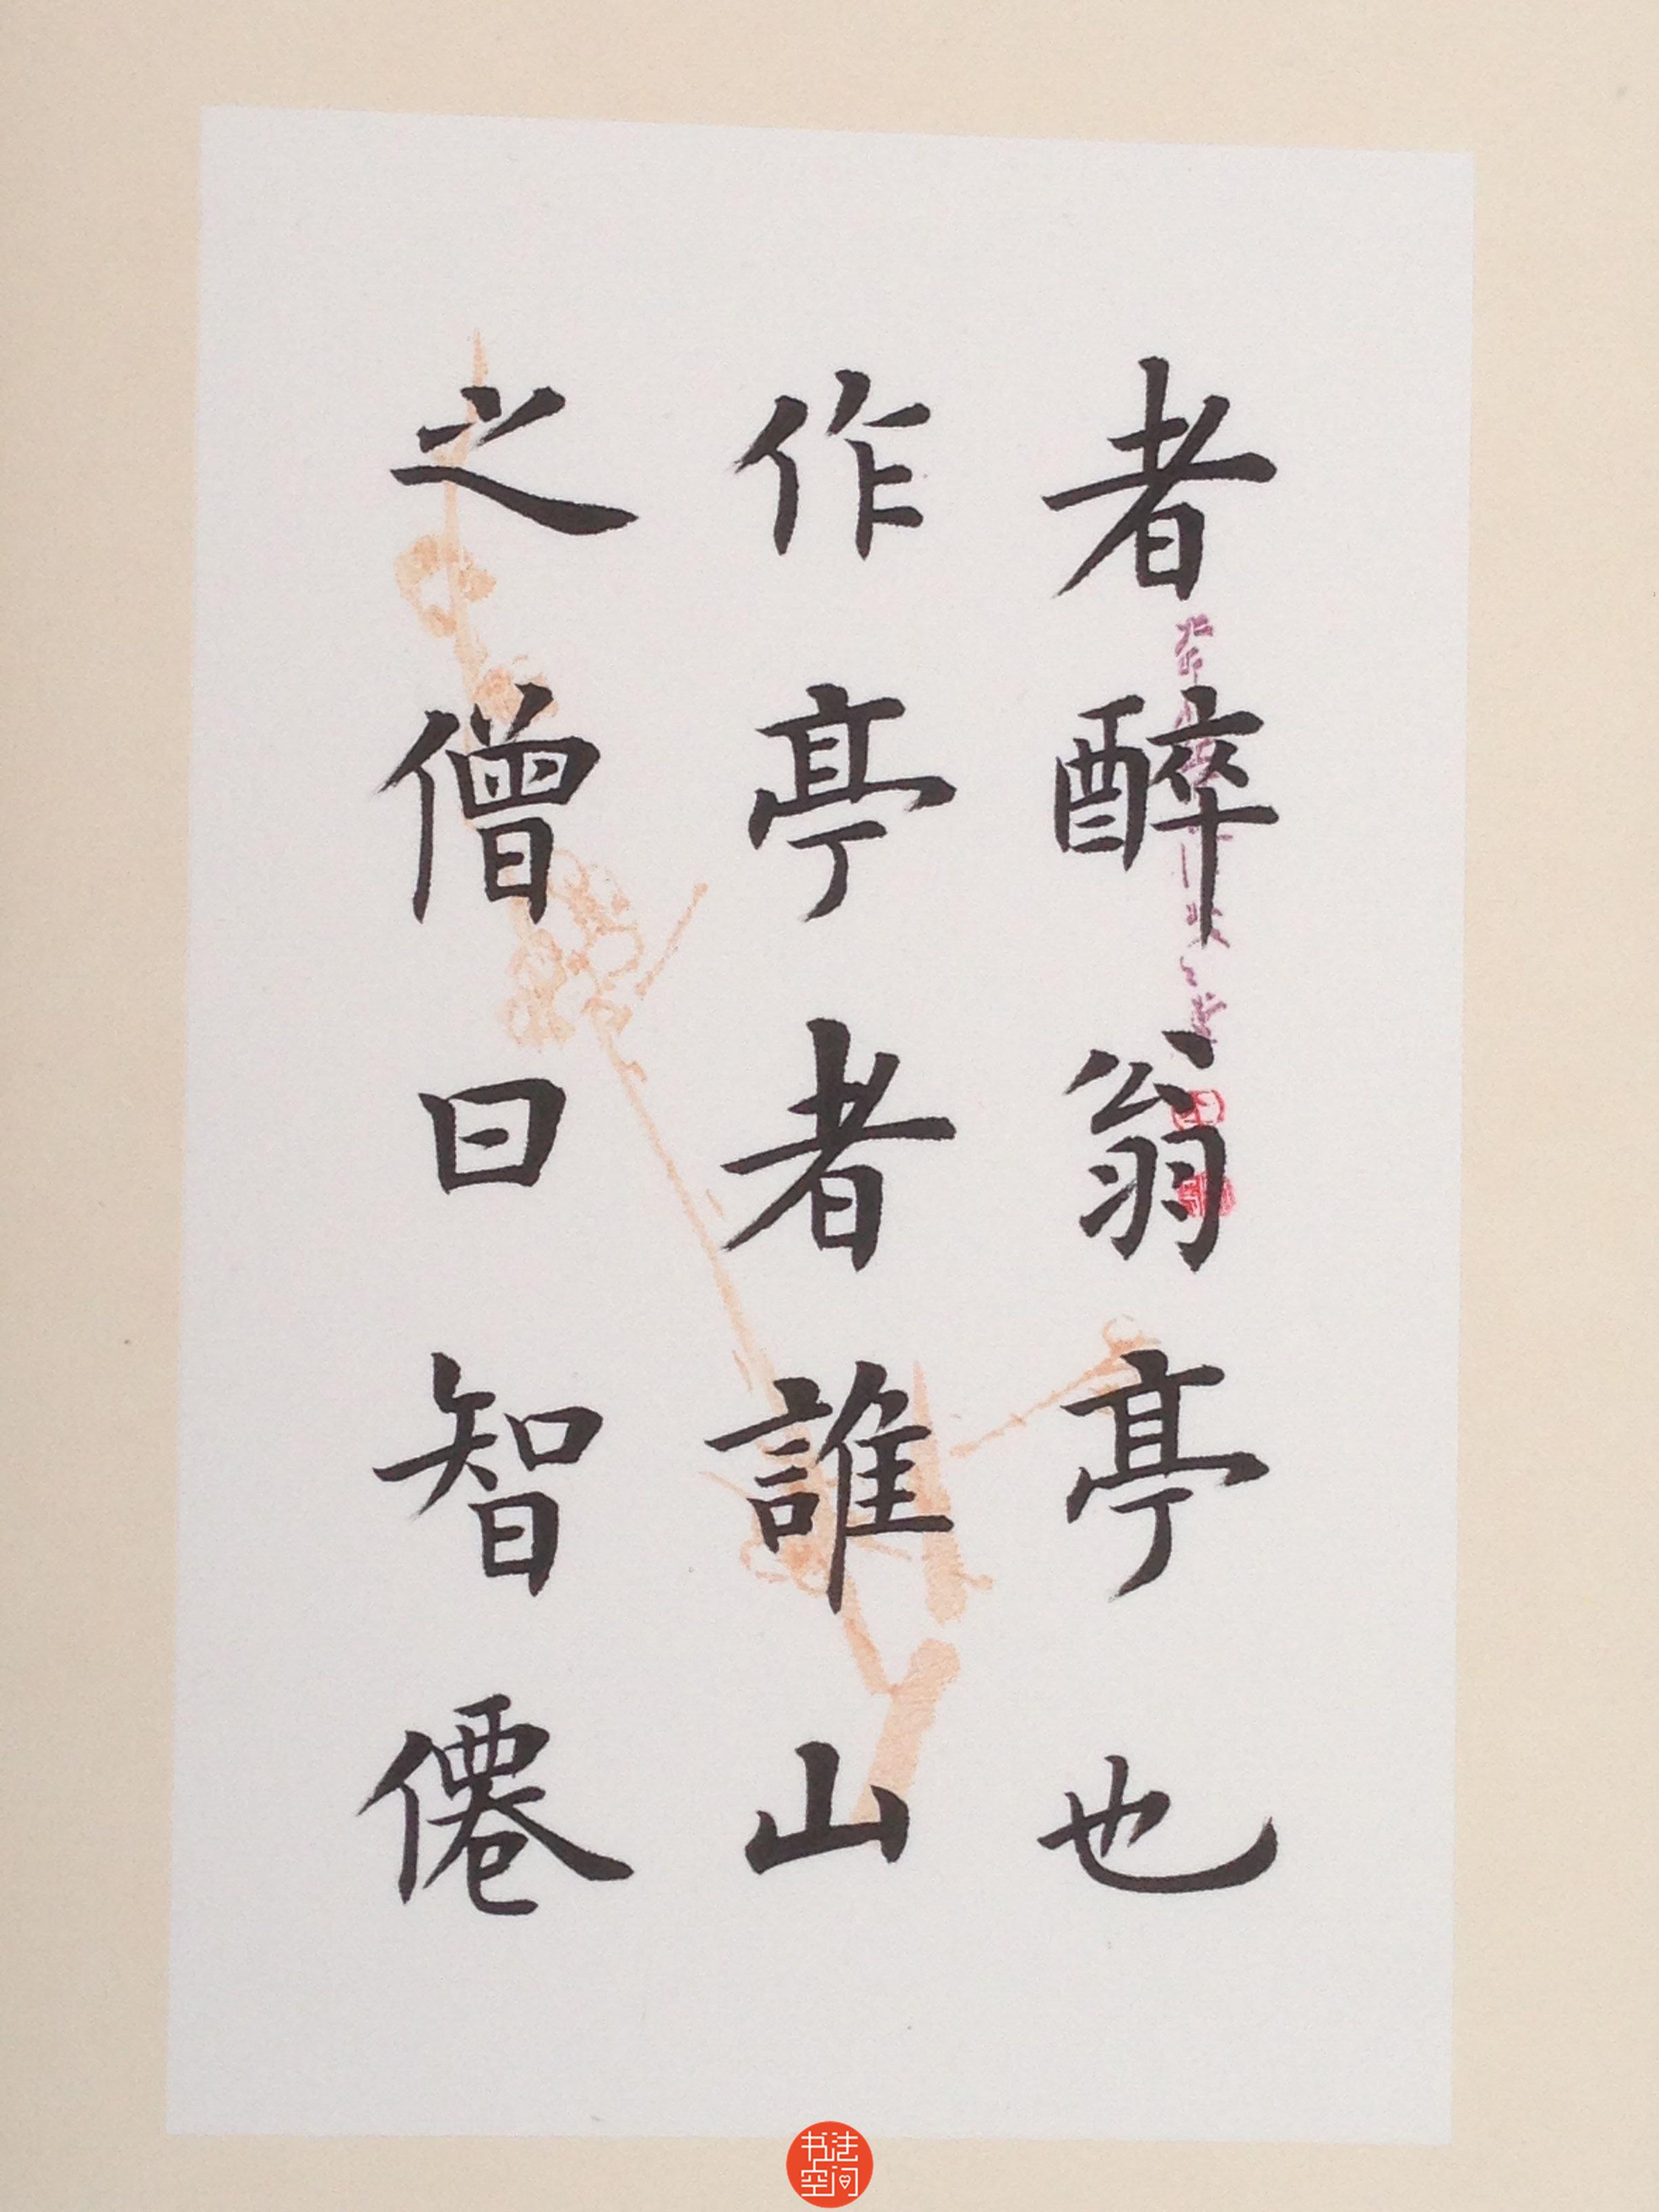 者醉翁亭也
作亭者誰山
之僧曰智僊
书法
空间